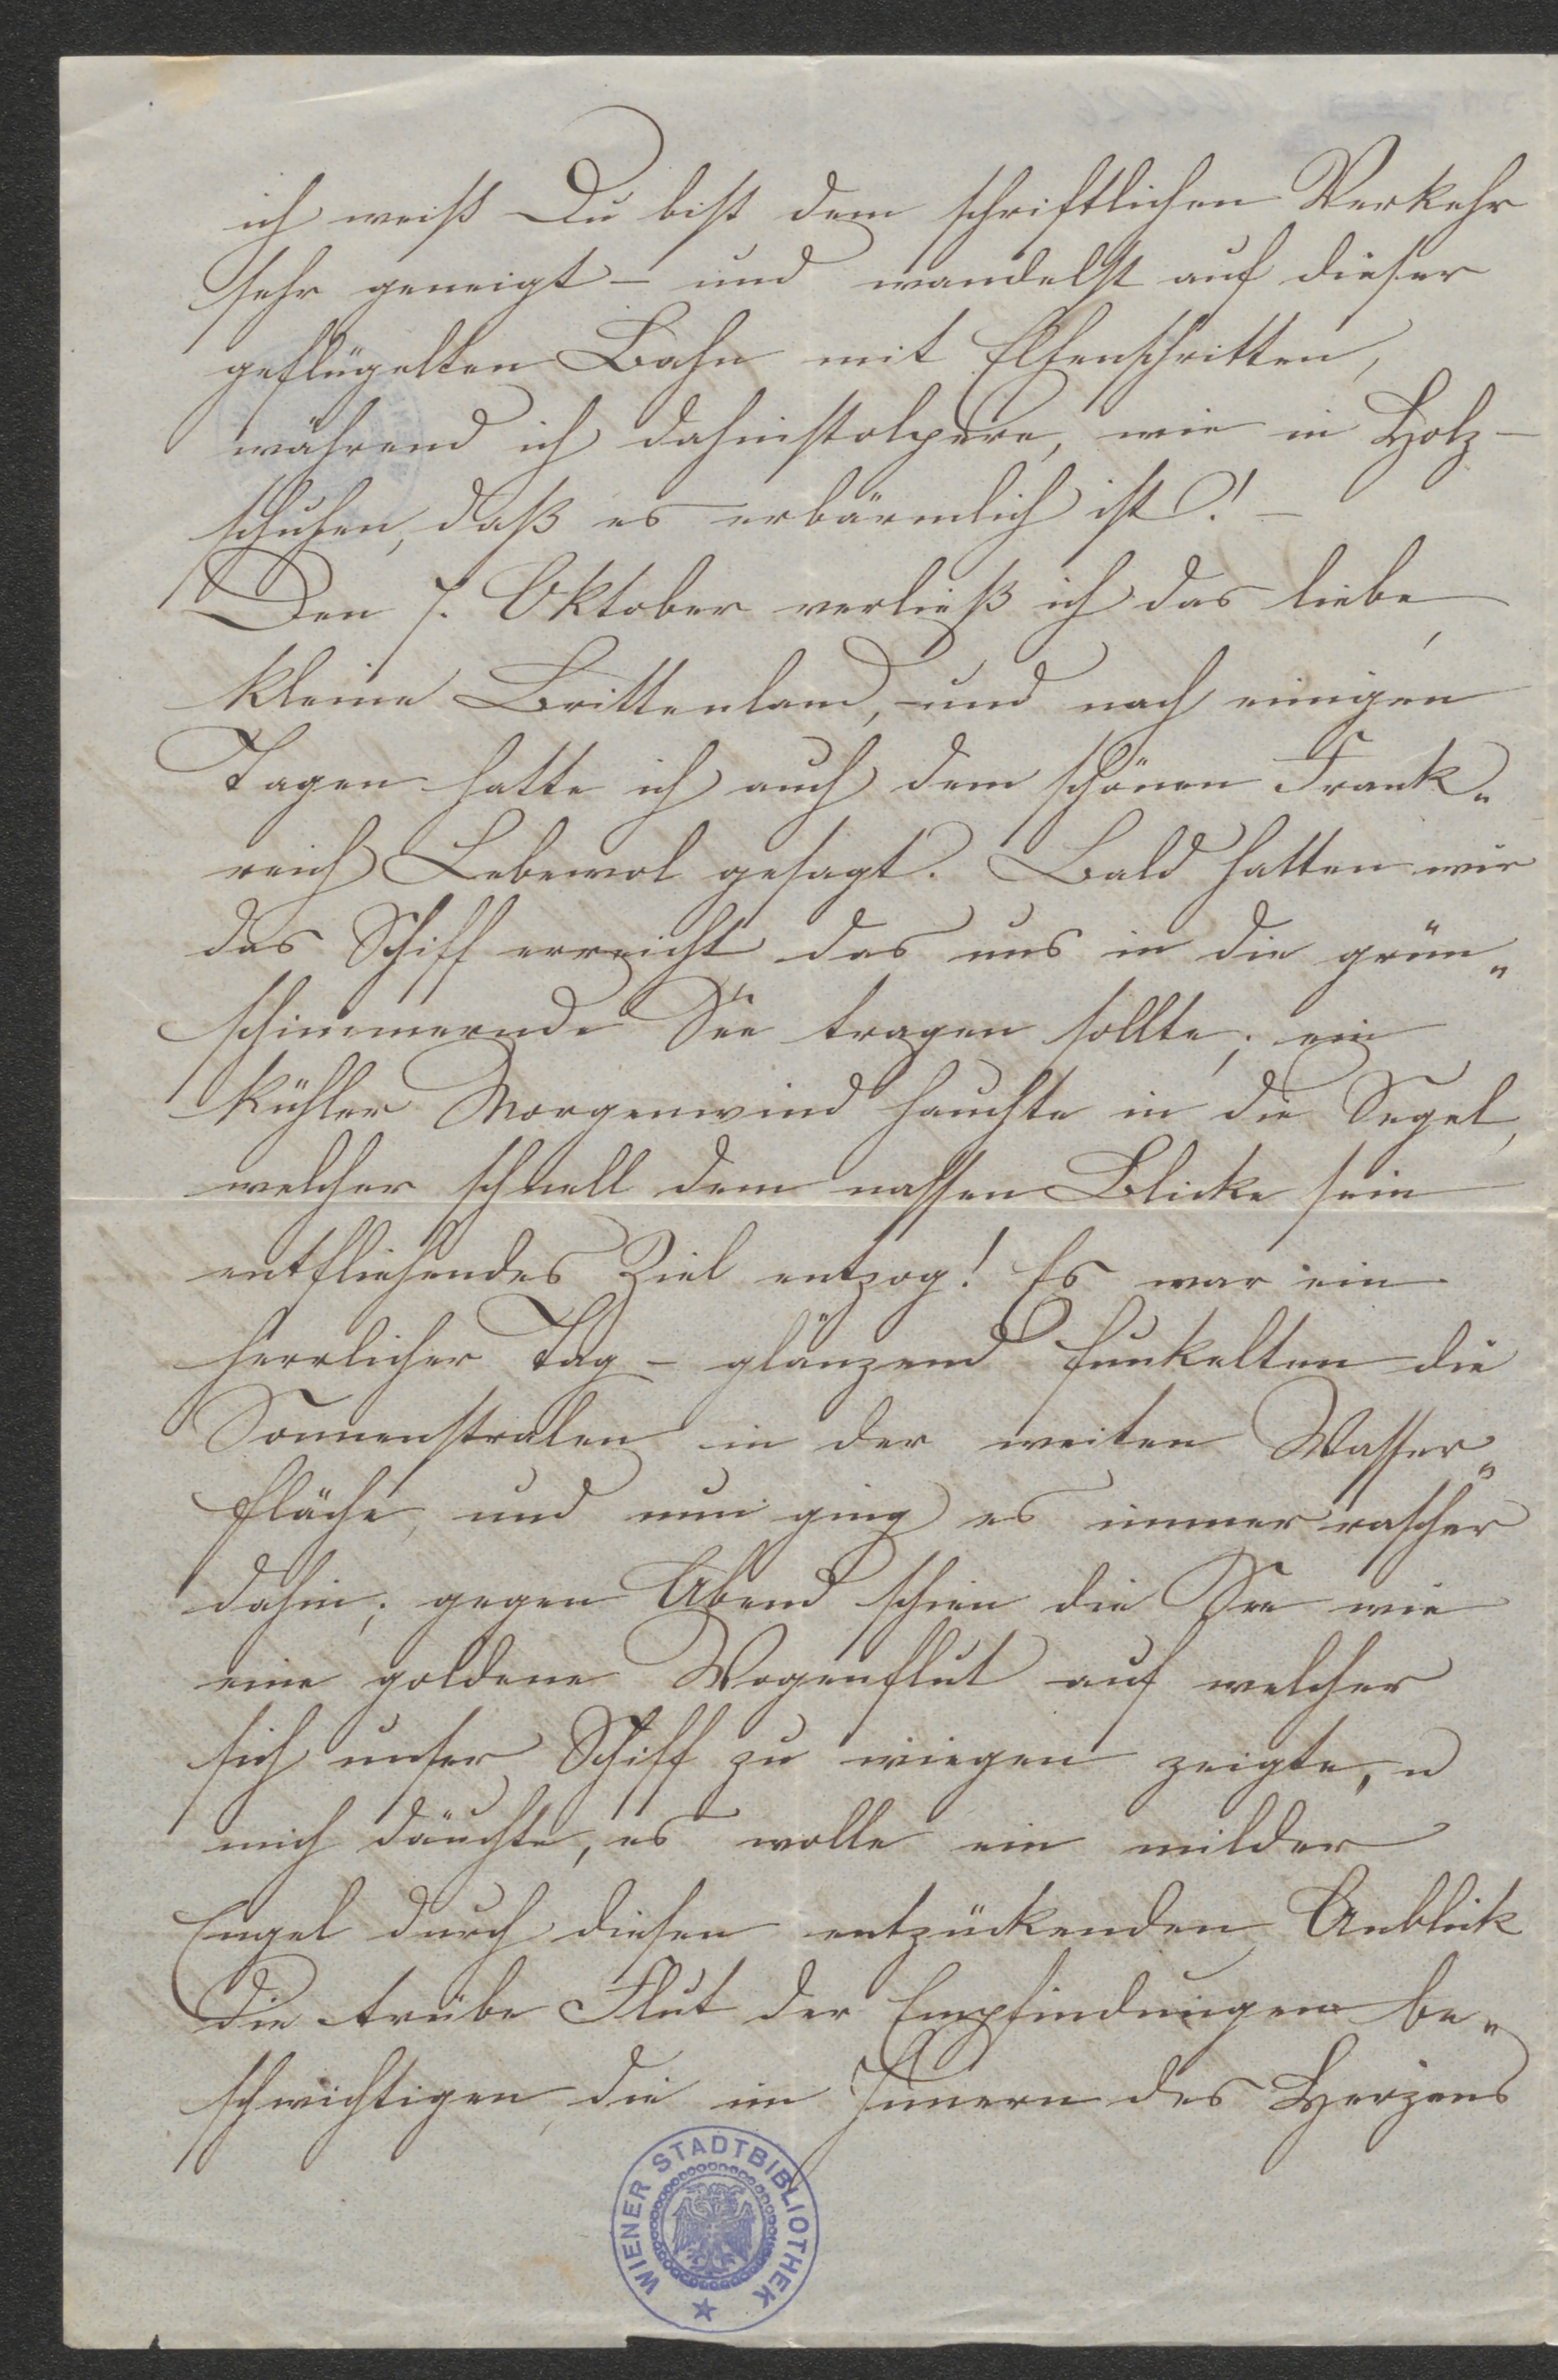 ich weiß Du bist dem schriftlichen Verkehr
sehr geneigt – und wandelst auf dieser
geflügelten Bahn mit Elfenschritten,
während ich dahinstolpere, wie in Holz-
schuhen, daß es erbärmlich ist! –
Den 7. Oktober verließ ich das liebe,
kleine Brittenland, und nach einigen
Tagen hatte ich auch dem schönen Frank„
reich Lebewol gesagt. Bald hatten wir
das Schiff erreicht das uns in die grün„
schimmernde See tragen sollte; ein
kühler Morgenwind hauchte in die Segel,
welcher schnell dem nassen Blicke sein
entfliehendes Ziel entzog! Es war ein
herrlicher Tag – glänzend funkelten die
Sonnenstralen in der weiten Wasser„
fläche, und nun ging es immer rascher
dahin; gegen Abend schien die See wie
eine goldene Wogenflut auf welcher
sich unser Schiff zu wiegen zeigte, u
mich däuchte, es wolle ein milder
Engel durch diesen entzückenden Anblick
die trübe Flut der Empfindungen be„
schwichtigen, die im Innern des Herzens
WIENER STADTBIBLIOTHEK